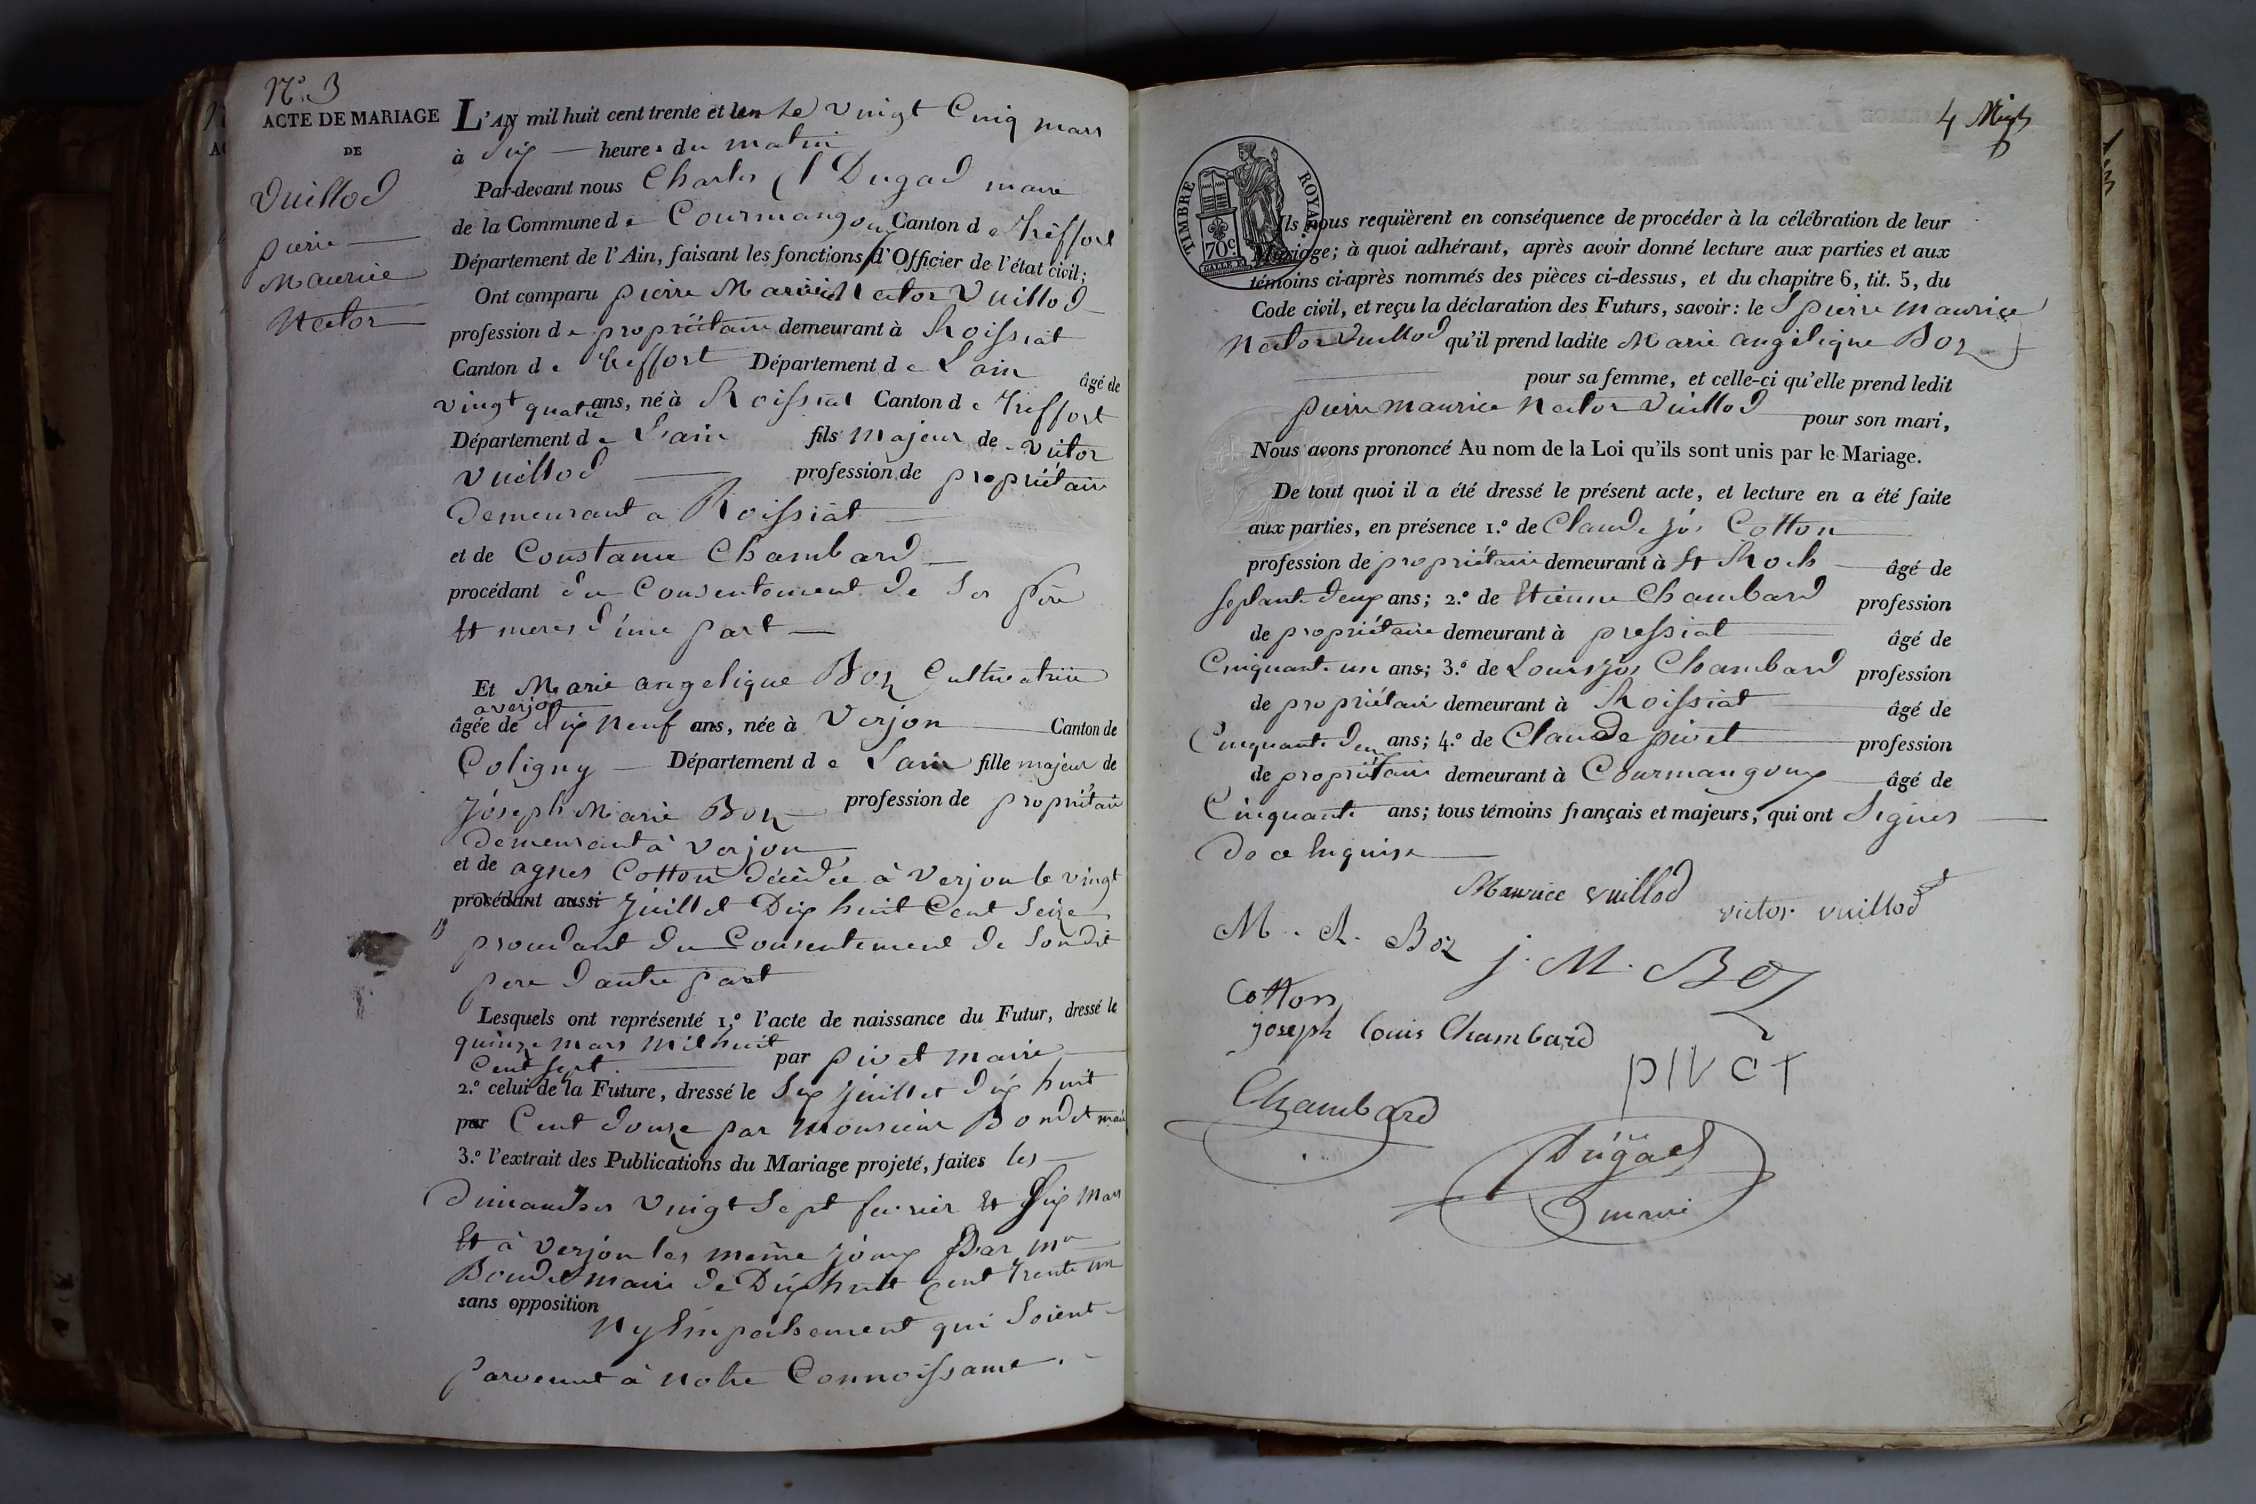 N.° 3
ACTE DE MARIAGE
DE
Vuillod
pierre
Maurice
Nector
L'AN mil huit cent trente et un le vingt Cinq mars
à dix heures du matin
Par-devant nous Charles Dugad maire
de la Commune de Courmangoux Canton de Treffort
Département de l'Ain, faisant les fonctions d'Officier de l'état civil;
Ont comparu pierre Maurice Nector Vuillod
profession de propriétaire demeurant à Roissiat
Canton de Treffort Département de Lain âgé de
vingt quatre ans, né à Roissiat Canton de Treffort
Département de Lain fils majeur de victor
vuillod profession de propriétaire
demeurant a Roissiat
et de Constance Chambard
procédant du Consentement de Ses père
Et meres d'une part
Et Marie angelique Boz Cultivatrice
a verjon
âgée de dix Neuf ans, née à Verjon Canton de
Coligny Département de Lain fille majeur de
Joseph Marie Boz profession de propriétaire
demeurant à verjon
et de agnes Cotton décédée à Verjon le vingt
procédant aussi juillet Dix huit Cent Seize
procedant du Consentement de Son dit
pere d'autre part
Lesquels ont représenté 1.° l'acte de naissance du Futur, dressé le
quinze mars mil huit
Cent sept par pivet maire
2.° celui de la Future, dressé le Six juillet dix huit
par Cent douze par Monsieur Bondet maire
3.° l'extrait des Publications du Mariage projeté, faites les
dimanches vingt Sept fevrier Et Six Mars
Et à verjon les meme jours Par Mr
Bondet maire de Dix huit cent trente un
sans opposition
Ny Empechement qui Soient
parvenut à notre Connoissance.
4 Mig
TIMBRE ROYAL
70c
Ils nous requièrent en conséquence de procéder à la célébration de leur
Mariage; à quoi adhérant, après avoir donné lecture aux parties et aux
témoins ci-après nommés des pièces ci-dessus, et du chapitre 6, tit. 5, du
Code civil, et reçu la déclaration des Futurs, savoir: le S pierre maurice
Nector Vuillod qu'il prend ladite Marie angelique Boz
pour sa femme, et celle-ci qu'elle prend ledit
pierre maurice Nector Vuillod pour son mari,
Nous avons prononcé Au nom de la Loi qu'ils sont unis par le Mariage.
De tout quoi il a été dressé le présent acte, et lecture en a été faite
aux parties, en présence 1.° de Claude Jos Cotton
profession de propriétaire demeurant à St Roch âgé de
septante deux ans; 2.° de Etienne Chambard profession
de propriétaire demeurant à pressiat âgé de
Cinquante un ans; 3.° de Louis jos Chambard profession
de propriétaire demeurant à Roissiat âgé de
Cinquante deux ans; 4.° de Claude pivet profession
de propriétaire demeurant à Courmangoux âgé de
Cinquante ans; tous témoins français et majeurs, qui ont Signés
de ce Enquis
Maurice vuillod
victor vuillod
M. A. Boz
J. M. Boz
Cotton
joseph louis Chambard
PIVET
Chambard
Dugad
maire